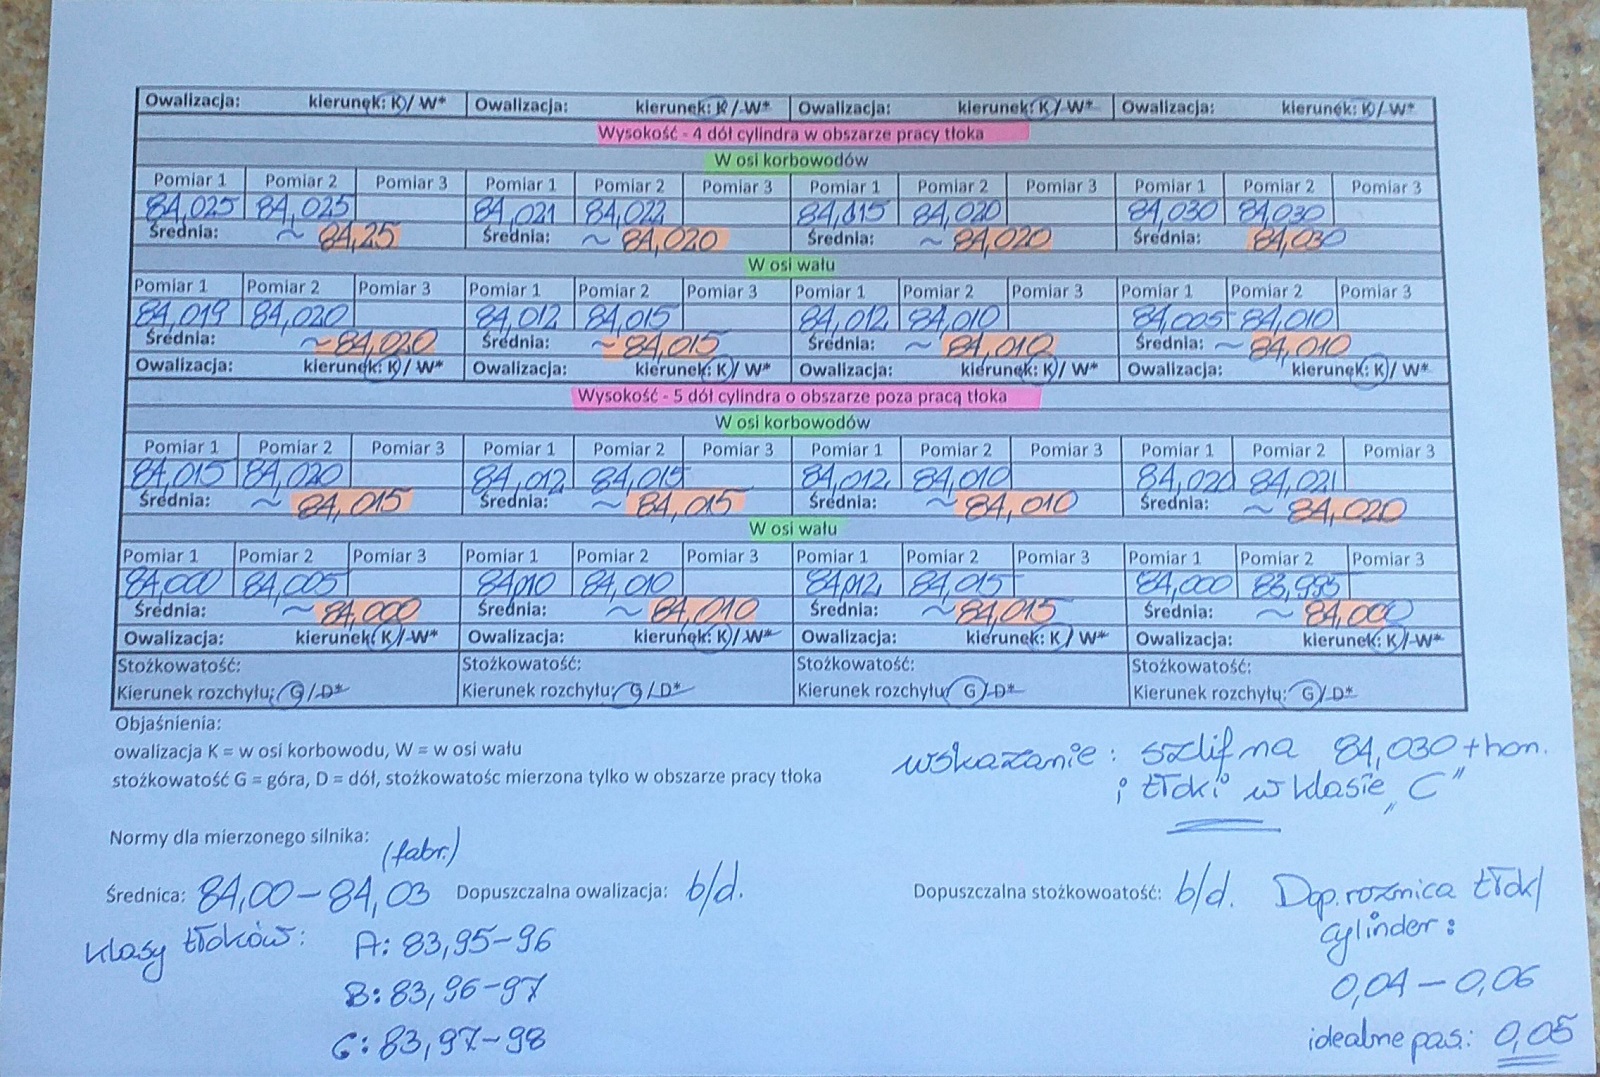 Owalizacja: kierunek: K / W* Owalizacja: kierunek: K / W* Owalizacja: kierunek: K / W* Owalizacja: kierunek: K / W*
Wysokość - 4 dół cylindra w obszarze pracy tłoka
W osi korbowodów
Pomiar 1 Pomiar 2 Pomiar 3 Pomiar 1 Pomiar 2 Pomiar 3 Pomiar 1 Pomiar 2 Pomiar 3 Pomiar 1 Pomiar 2 Pomiar 3
84,025 84,025 84,021 84,022 84,015 84,020 84,030 84,030
Średnia: ~ 84,25 Średnia: ~ 84,020 Średnia: ~ 84,020 Średnia: 84,030
W osi wału
Pomiar 1 Pomiar 2 Pomiar 3 Pomiar 1 Pomiar 2 Pomiar 3 Pomiar 1 Pomiar 2 Pomiar 3 Pomiar 1 Pomiar 2 Pomiar 3
84,019 84,020 84,012 84,015 84,012 84,010 84,005 84,010
Średnia: ~ 84,020 Średnia: ~ 84,015 Średnia: ~ 84,010 Średnia: ~ 84,010
Owalizacja: kierunek: K / W* Owalizacja: kierunek: K / W* Owalizacja: kierunek: K / W* Owalizacja: kierunek: K / W*
Wysokość - 5 dół cylindra o obszarze poza pracą tłoka
W osi korbowodów
Pomiar 1 Pomiar 2 Pomiar 3 Pomiar 1 Pomiar 2 Pomiar 3 Pomiar 1 Pomiar 2 Pomiar 3 Pomiar 1 Pomiar 2 Pomiar 3
84,015 84,020 84,012 84,015 84,012 84,010 84,020 84,021
Średnia: ~ 84,015 Średnia: ~ 84,015 Średnia: ~ 84,010 Średnia: ~ 84,020
W osi wału
Pomiar 1 Pomiar 2 Pomiar 3 Pomiar 1 Pomiar 2 Pomiar 3 Pomiar 1 Pomiar 2 Pomiar 3 Pomiar 1 Pomiar 2 Pomiar 3
84,000 84,005 84,010 84,010 84,012 84,015 84,000 83,995
Średnia: ~ 84,000 Średnia: ~ 84,010 Średnia: ~ 84,015 Średnia: ~ 84,000
Owalizacja: kierunek: K / W* Owalizacja: kierunek: K / W* Owalizacja: kierunek: K / W* Owalizacja: kierunek: K / W*
Stożkowatość: Stożkowatość: Stożkowatość: Stożkowatość:
Kierunek rozchyłu: G / D* Kierunek rozchyłu: G / D* Kierunek rozchyłu: G / D* Kierunek rozchyłu: G / D*
Objaśnienia:
owalizacja K = w osi korbowodu, W = w osi wału
stożkowatość G = góra, D = dół, stożkowatośc mierzona tylko w obszarze pracy tłoka
wskazanie: szlif na 84,030 + hon.
i tłoki w klasie „C”
Normy dla mierzonego silnika:
(fabr.)
Średnica: 84,00 – 84,03 Dopuszczalna owalizacja: b/d. Dopuszczalna stożkowoatość: b/d. Dop. rozmica tłok/
cylinder:
klasy tłoków: A: 83,95-96
0,04 – 0,06
B: 83,96-97
idealne pas.: 0,05
C: 83,97-98